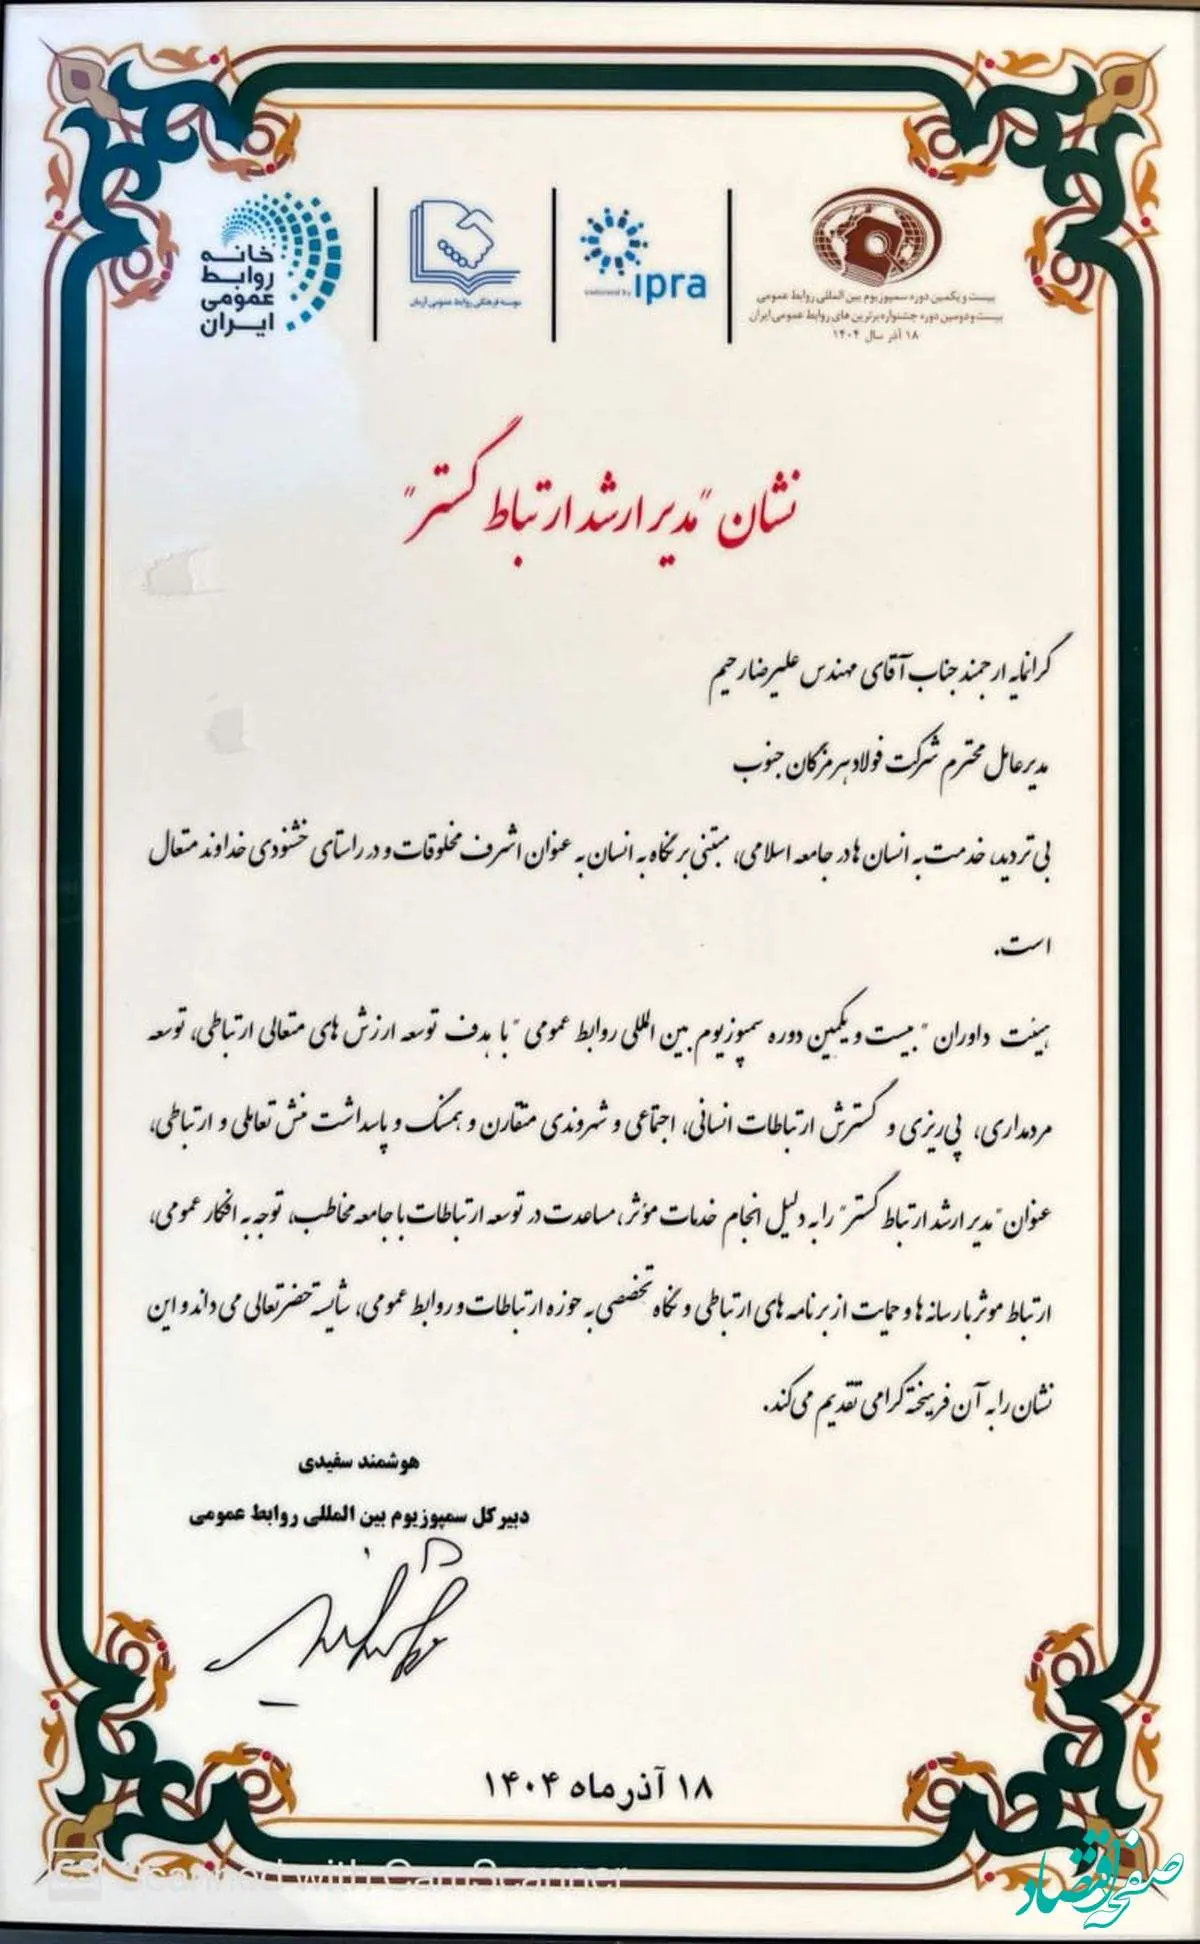 خانه
روابط
عمومی
ایران
موسسه فرهنگی روابط عمومی آرمان
endorsed by ipra
بیست و یکمین دوره سمپوزیوم بین المللی روابط عمومی
بیست و دومین دوره جشنواره برترین های روابط عمومی ایران
۱۸ آذر سال ۱۴۰۴
نشان "مدیر ارشد ارتباط گستر"
گرانمایه ارجمند جناب آقای مهندس علیرضا رحیم
مدیرعامل محترم شرکت فولاد هرمزگان جنوب
بی تردید، خدمت به انسان ها در جامعه اسلامی، مبتنی بر نگاه به انسان به عنوان اشرف مخلوقات و در راستای خشنودی خداوند متعال
است.
هیئت داوران "بیست و یکمین دوره سمپوزیوم بین المللی روابط عمومی" با هدف توسعه ارزش های متعالی ارتباطی، توسعه
مردمداری، پی‌ریزی و گسترش ارتباطات انسانی، اجتماعی و شهروندی متقارن و همسنگ و پاسداشت منش تعاملی و ارتباطی،
عنوان "مدیر ارشد ارتباط گستر" را به دلیل انجام خدمات مؤثر، مساعدت در توسعه ارتباطات با جامعه مخاطب، توجه به افکار عمومی،
ارتباط موثر با رسانه ها و حمایت از برنامه های ارتباطی و نگاه تخصصی به حوزه ارتباطات و روابط عمومی، شایسته حضرتعالی می داند و این
نشان را به آن فرهیخته گرامی تقدیم می‌کند.
هوشمند سفیدی
دبیر کل سمپوزیوم بین المللی روابط عمومی
۱۸ آذر ماه ۱۴۰۴
CS Scanned with CamScanner
صفحه اقتصاد